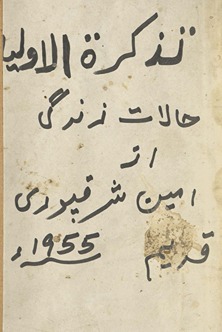 تذكرة الاوليا
حالات زندگی
از
امین شرقپوری
قدیم 1955ء